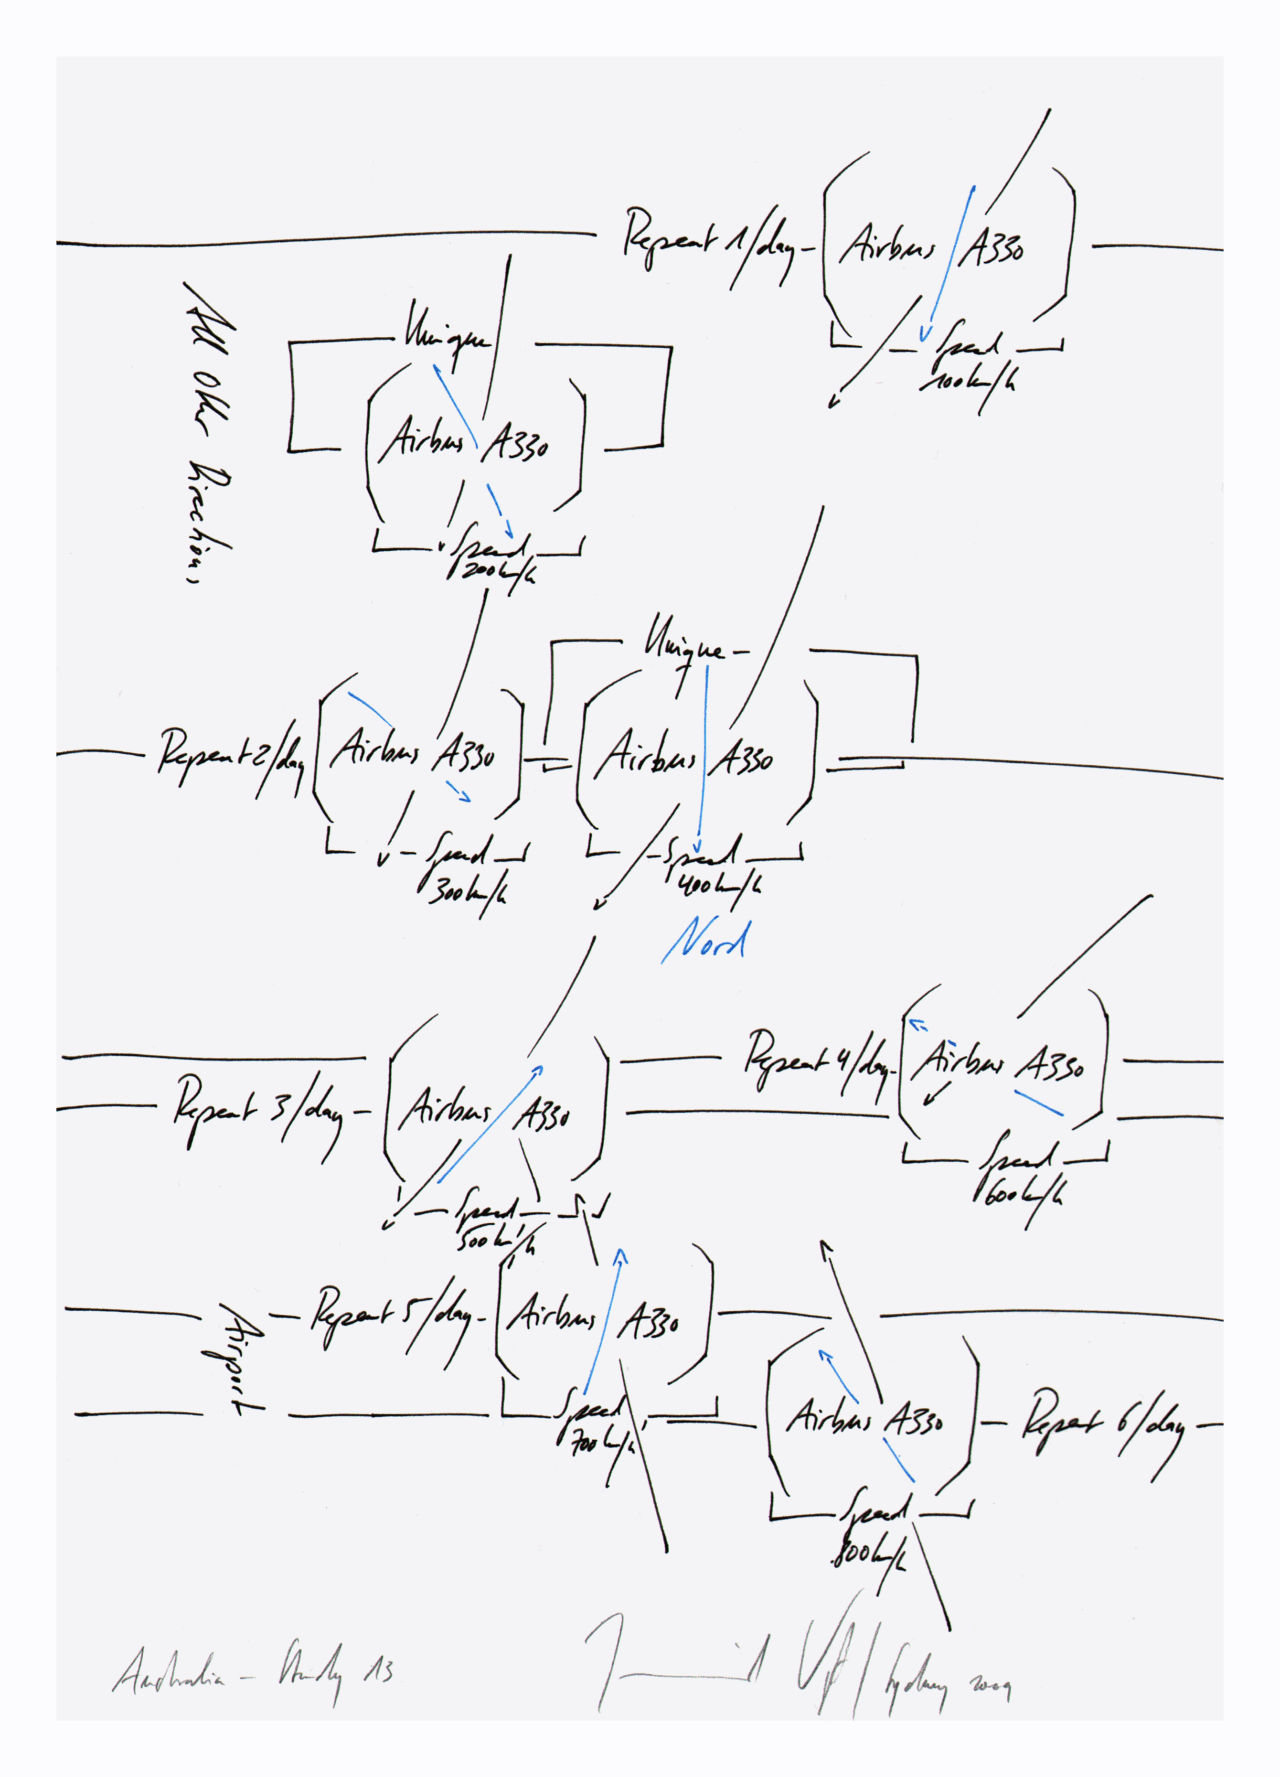 Repeat 1/day
Airbus A330
Speed
100km/h
All Other Directions
Unique
Airbus A330
Speed
200km/h
Repeat 2/day
Airbus A330
Speed
300km/h
Unique
Airbus A330
Speed
400km/h
Nord
Repeat 3/day
Airbus A330
Speed
500km/h
Repeat 4/day
Airbus A330
Speed
600km/h
Airport
Repeat 5/day
Airbus A330
Speed
700km/h
Airbus A330
Repeat 6/day
Speed
800km/h
Australia – Study 13
/ Sydney 2009